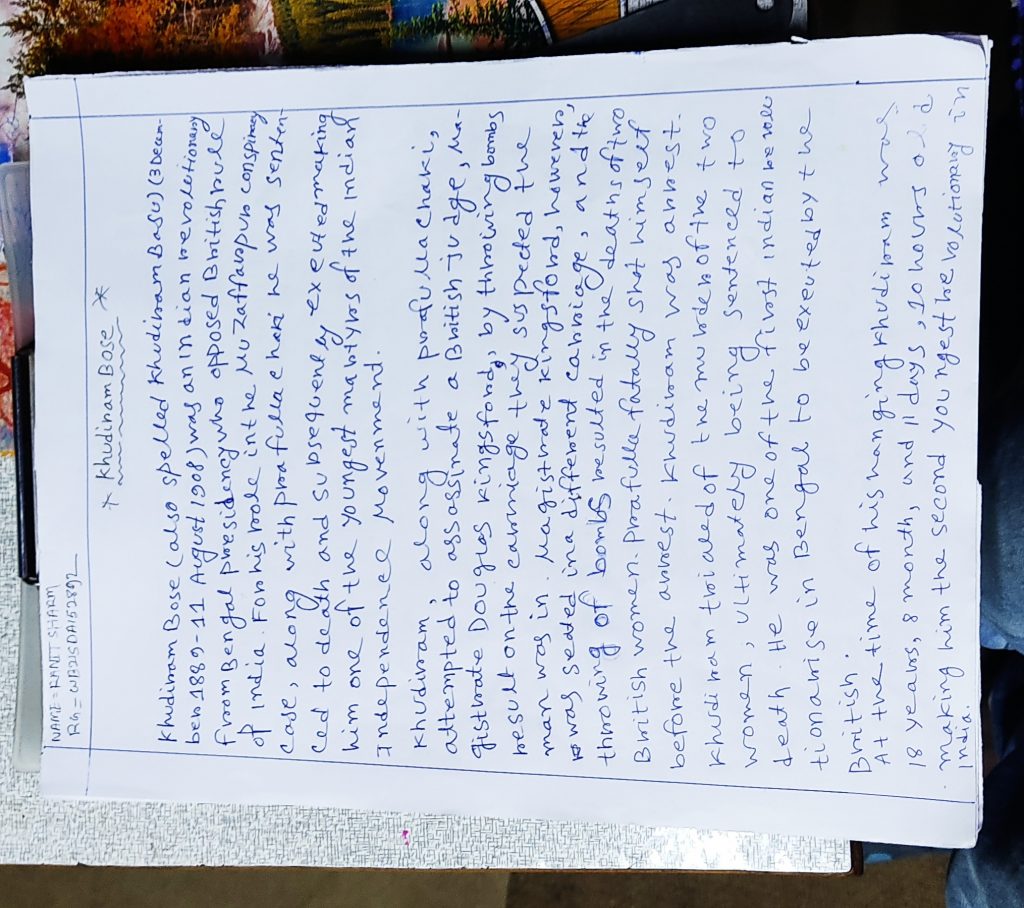 NAME = RANIT SHARM
RG = WB21SDA152892
* Khudiram Bose *
Khudiram Bose (also spelled Khudiram Basu) (3 Decem-
ber 1889-11 August 1908) was an Indian revolutionary
from Bengal presidency who opposed British rule
of India. For his role in the Muzaffarpur conspiracy
Case, along with prafulla chaki he was senten-
ced to death and subsequently executed making
him one of the youngest martyrs of the Indian
Independence Movenment.
Khudiram, along with profulla chaki,
attempted to assassinate a British judge, Ma-
gistrate Douglas kingsford, by throwing bombs
result on the carriage they suspected the
man was in. Magistrate kingsford, however,
was seated in a different carriage, and the
throwing of bombs resulted in the deaths of two
British women. Prafulla fatally shot himself
before the arrest. Khudiram was arrest.
Khudiram trialed of the murder of the two
women, ultimately being sentenced to
death. He was one of the first Indian revolu
tionarise in Bengal to be exeuted by the
British.
At the time of his hanging khudiram was
18 years, 8 month, and 11 days, 10 hours old
making him the second youngest revolutionary in
India.